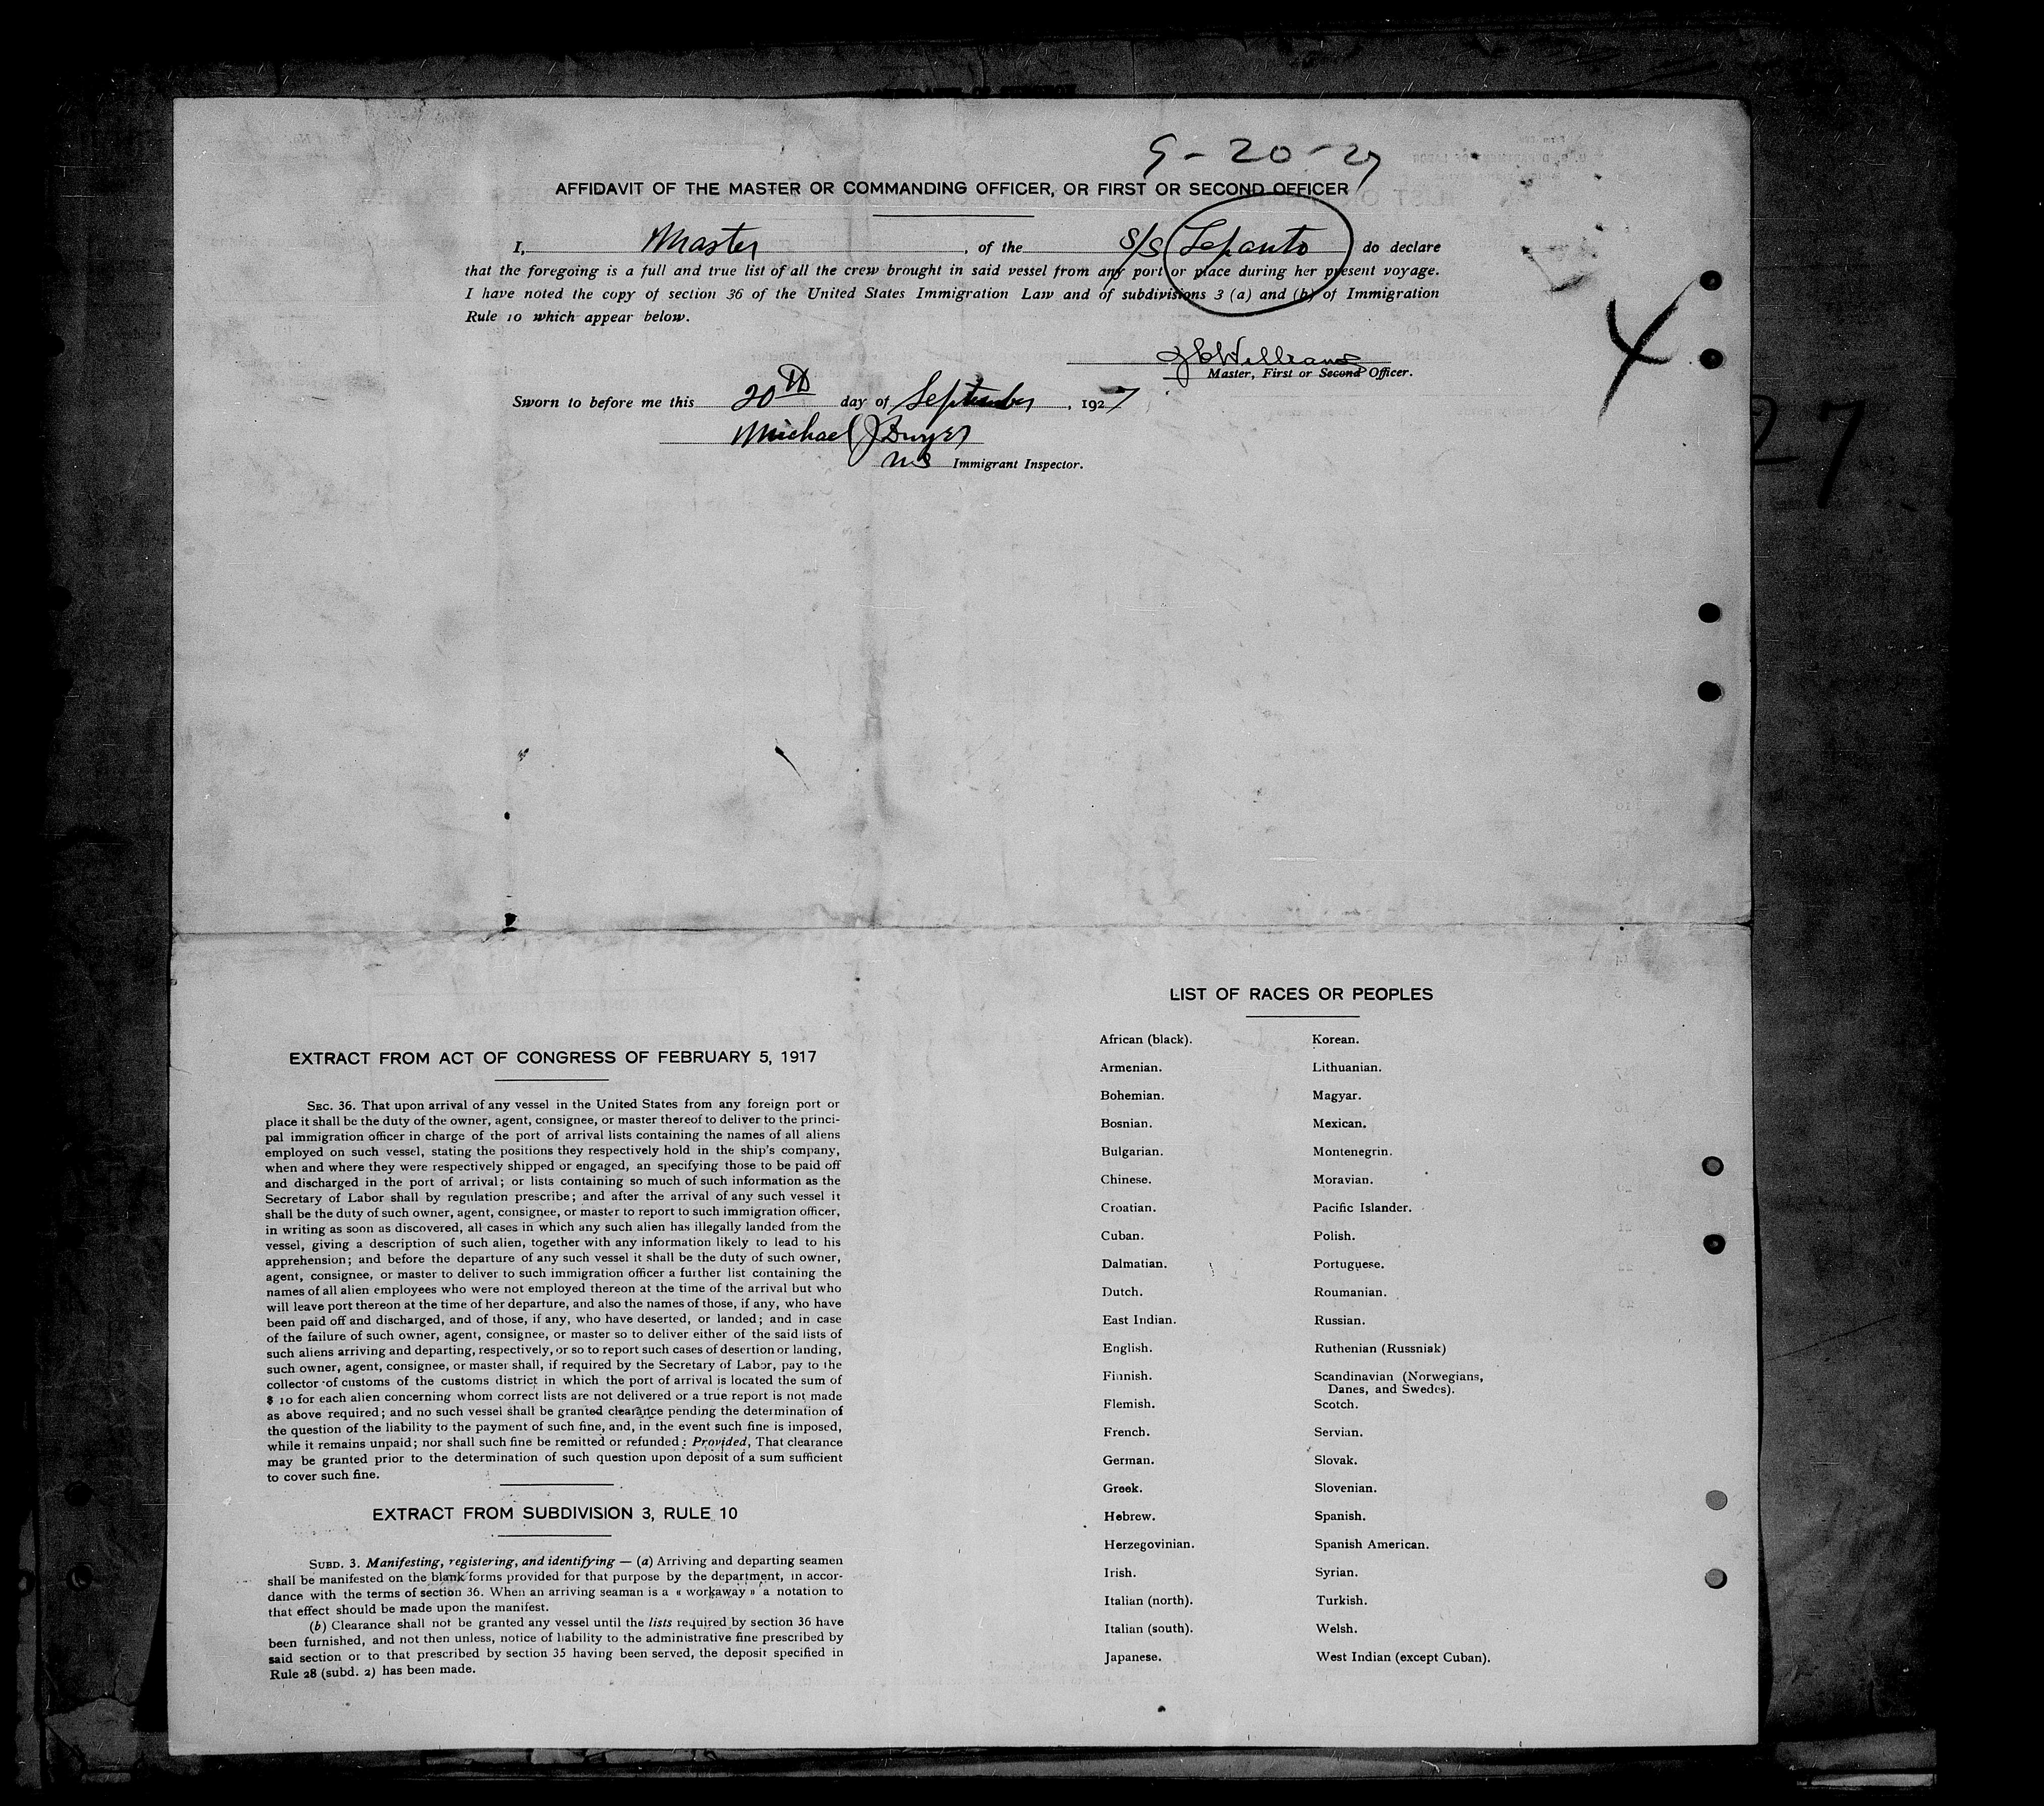 9-20-27
AFFIDAVIT OF THE MASTER OR COMMANDING OFFICER, OR FIRST OR SECOND OFFICER
I, Master, of the S/S Lepanto do declare
that the foregoing is a full and true list of all the crew brought in said vessel from any port or place during her present voyage.
I have noted the copy of section 36 of the United States Immigration Law and of subdivisions 3 (a) and (b) of Immigration
Rule 10 which appear below.
4
Williams
Master, First or Second Officer.
Sworn to before me this 20th day of September, 1927
27
Michael J Dwyer
Immigrant Inspector.
EXTRACT FROM ACT OF CONGRESS OF FEBRUARY 5, 1917
SEC. 36. That upon arrival of any vessel in the United States from any foreign port or
place it shall be the duty of the owner, agent, consignee, or master thereof to deliver to the princi-
pal immigration officer in charge of the port of arrival lists containing the names of all aliens
employed on such vessel, stating the positions they respectively hold in the ship's company,
when and where they were respectively shipped or engaged, an specifying those to be paid off
and discharged in the port of arrival; or lists containing so much of such information as the
Secretary of Labor shall by regulation prescribe; and after the arrival of any such vessel it
shall be the duty of such owner, agent, consignee, or master to report to such immigration officer,
in writing as soon as discovered, all cases in which any such alien has illegally landed from the
vessel, giving a description of such alien, together with any information likely to lead to his
apprehension; and before the departure of any such vessel it shall be the duty of such owner,
agent, consignee, or master to deliver to such immigration officer a further list containing the
names of all alien employees who were not employed thereon at the time of the arrival but who
will leave port thereon at the time of her departure, and also the names of those, if any, who have
been paid off and discharged, and of those, if any, who have deserted, or landed; and in case
of the failure of such owner, agent, consignee, or master so to deliver either of the said lists of
such aliens arriving and departing, respectively, or so to report such cases of desertion or landing,
such owner, agent, consignee, or master shall, if required by the Secretary of Labor, pay to the
collector of customs of the customs district in which the port of arrival is located the sum of
$ 10 for each alien concerning whom correct lists are not delivered or a true report is not made
as above required; and no such vessel shall be granted clearance pending the determination of
the question of the liability to the payment of such fine, and, in the event such fine is imposed,
while it remains unpaid; nor shall such fine be remitted or refunded: Provided, That clearance
may be granted prior to the determination of such question upon deposit of a sum sufficient
to cover such fine.
EXTRACT FROM SUBDIVISION 3, RULE 10
SUBD. 3. Manifesting, registering, and identifying — (a) Arriving and departing seamen
shall be manifested on the blank forms provided for that purpose by the department, in accor-
dance with the terms of section 36. When an arriving seaman is a « workaway » a notation to
that effect should be made upon the manifest.
(b) Clearance shall not be granted any vessel until the lists required by section 36 have
been furnished, and not then unless, notice of liability to the administrative fine prescribed by
said section or to that prescribed by section 35 having been served, the deposit specified in
Rule 28 (subd. 2) has been made.
LIST OF RACES OR PEOPLES
African (black).
Armenian.
Bohemian.
Bosnian.
Bulgarian.
Chinese.
Croatian.
Cuban.
Dalmatian.
Dutch.
East Indian.
English.
Finnish.
Flemish.
French.
German.
Greek.
Hebrew.
Herzegovinian.
Irish.
Italian (north).
Italian (south).
Japanese.
Korean.
Lithuanian.
Magyar.
Mexican.
Montenegrin.
Moravian.
Pacific Islander.
Polish.
Portuguese.
Roumanian.
Russian.
Ruthenian (Russniak)
Scandinavian (Norwegians,
Danes, and Swedes).
Scotch.
Servian.
Slovak.
Slovenian.
Spanish.
Spanish American.
Syrian.
Turkish.
Welsh.
West Indian (except Cuban).